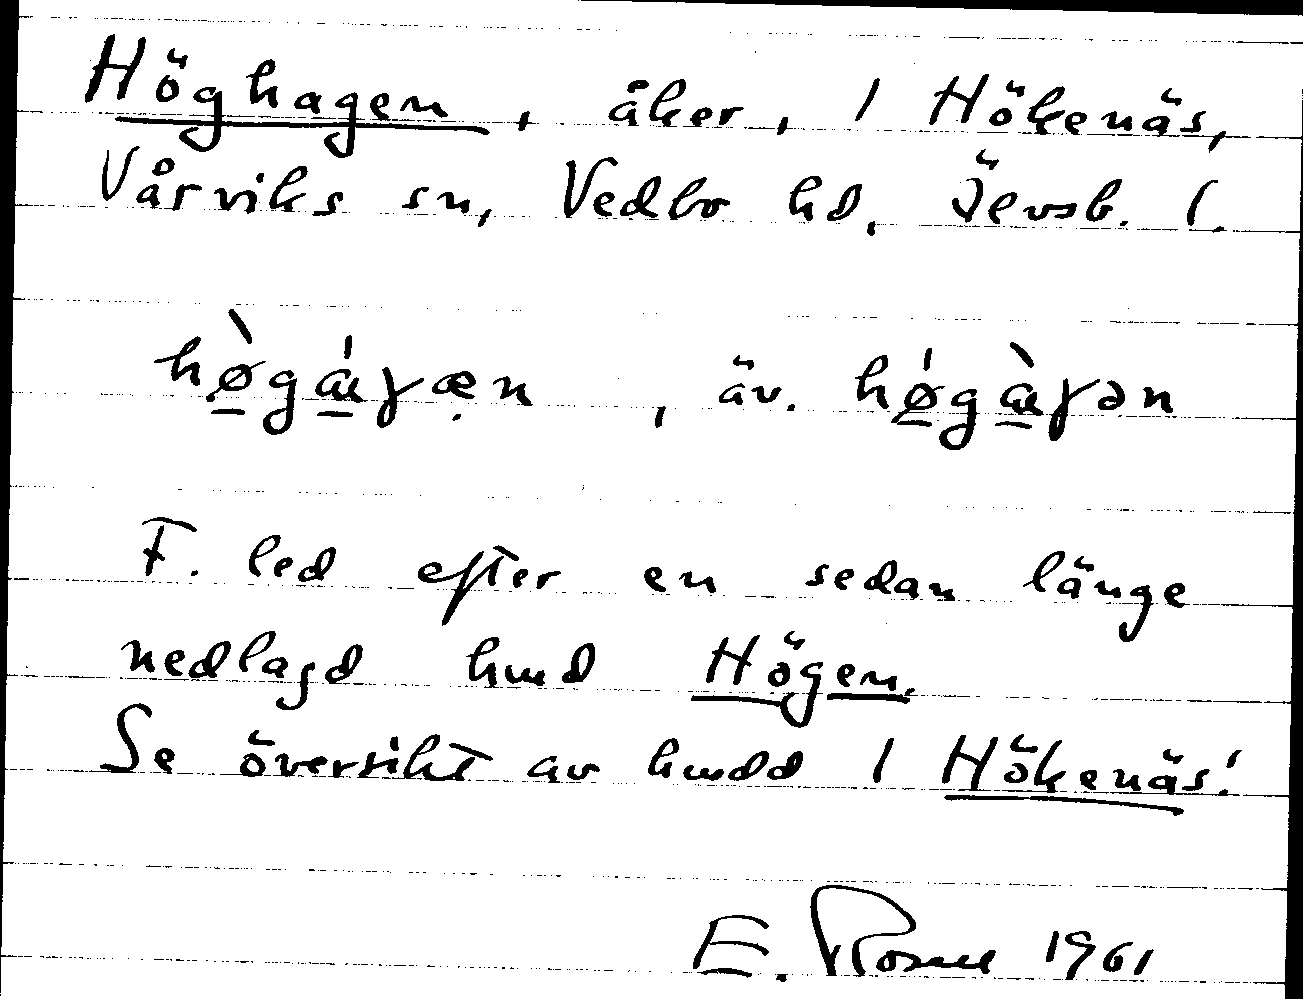 Höghagen, åker, i Hökenäs,
Vårviks sn, Vedbo hd, Älvsb. l.
hø̠̀gá̠ɣæ̣n, äv. hǿ̠gà̠ɣən
F. led efter en sedan länge
nedlagd hmd Högen.
Se översikt av hmdd i Hökenäs!
E. 1961